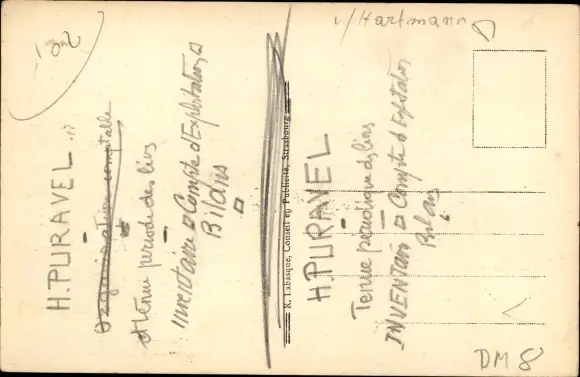 v/ Hartmann
H. PURAVEL
Organisation comptable
et tenue période des livs
Inventaire Compte d'Exploitation
Bilans
R. Labasque, Conseil en Publicité, Strasbourg
H. PURAVEL
Tenue périodique des livs
INVENTAire Compte d'Exploitation
Bilans
DM 8